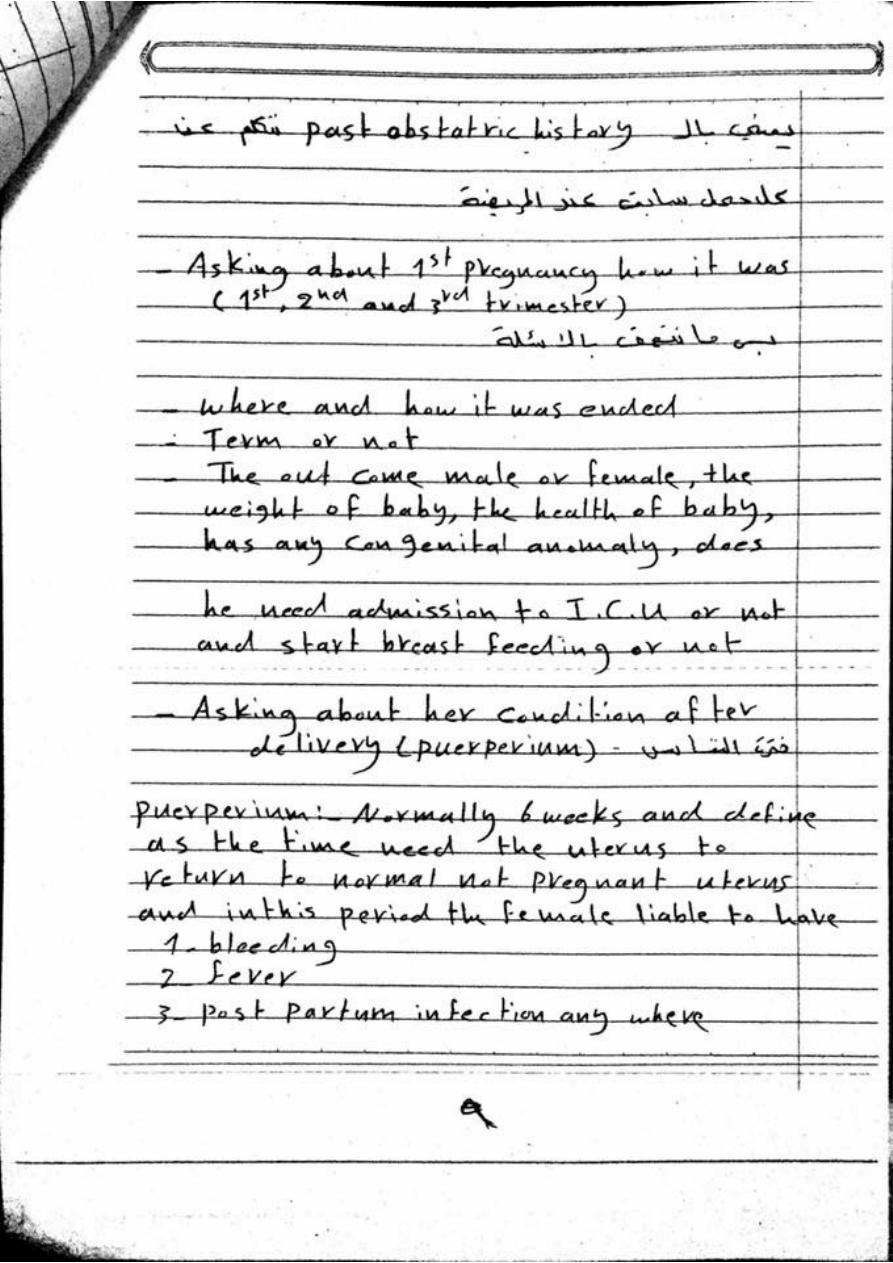 يعني بال past obstatric history نتكلم عن
كل حمل سابق عند المريضة
- Asking about 1st pregnancy how it was
( 1st, 2nd and 3rd trimester)
بس ما نتعمق بالاسئلة
- where and how it was ended
- Term or not
- The out come male or female, the
weight of baby, the health of baby,
has any congenital anomaly, does
he need admission to I.C.U or not
and start breast feeding or not
- Asking about her condition after
delivery (puerperium) - فترة النفاس
puerperium:- Normally 6 weeks and define
as the time need the uterus to
return to normal not pregnant uterus
and in this period the female liable to have
1- bleeding
2- fever
3- post partum infection any where
٩